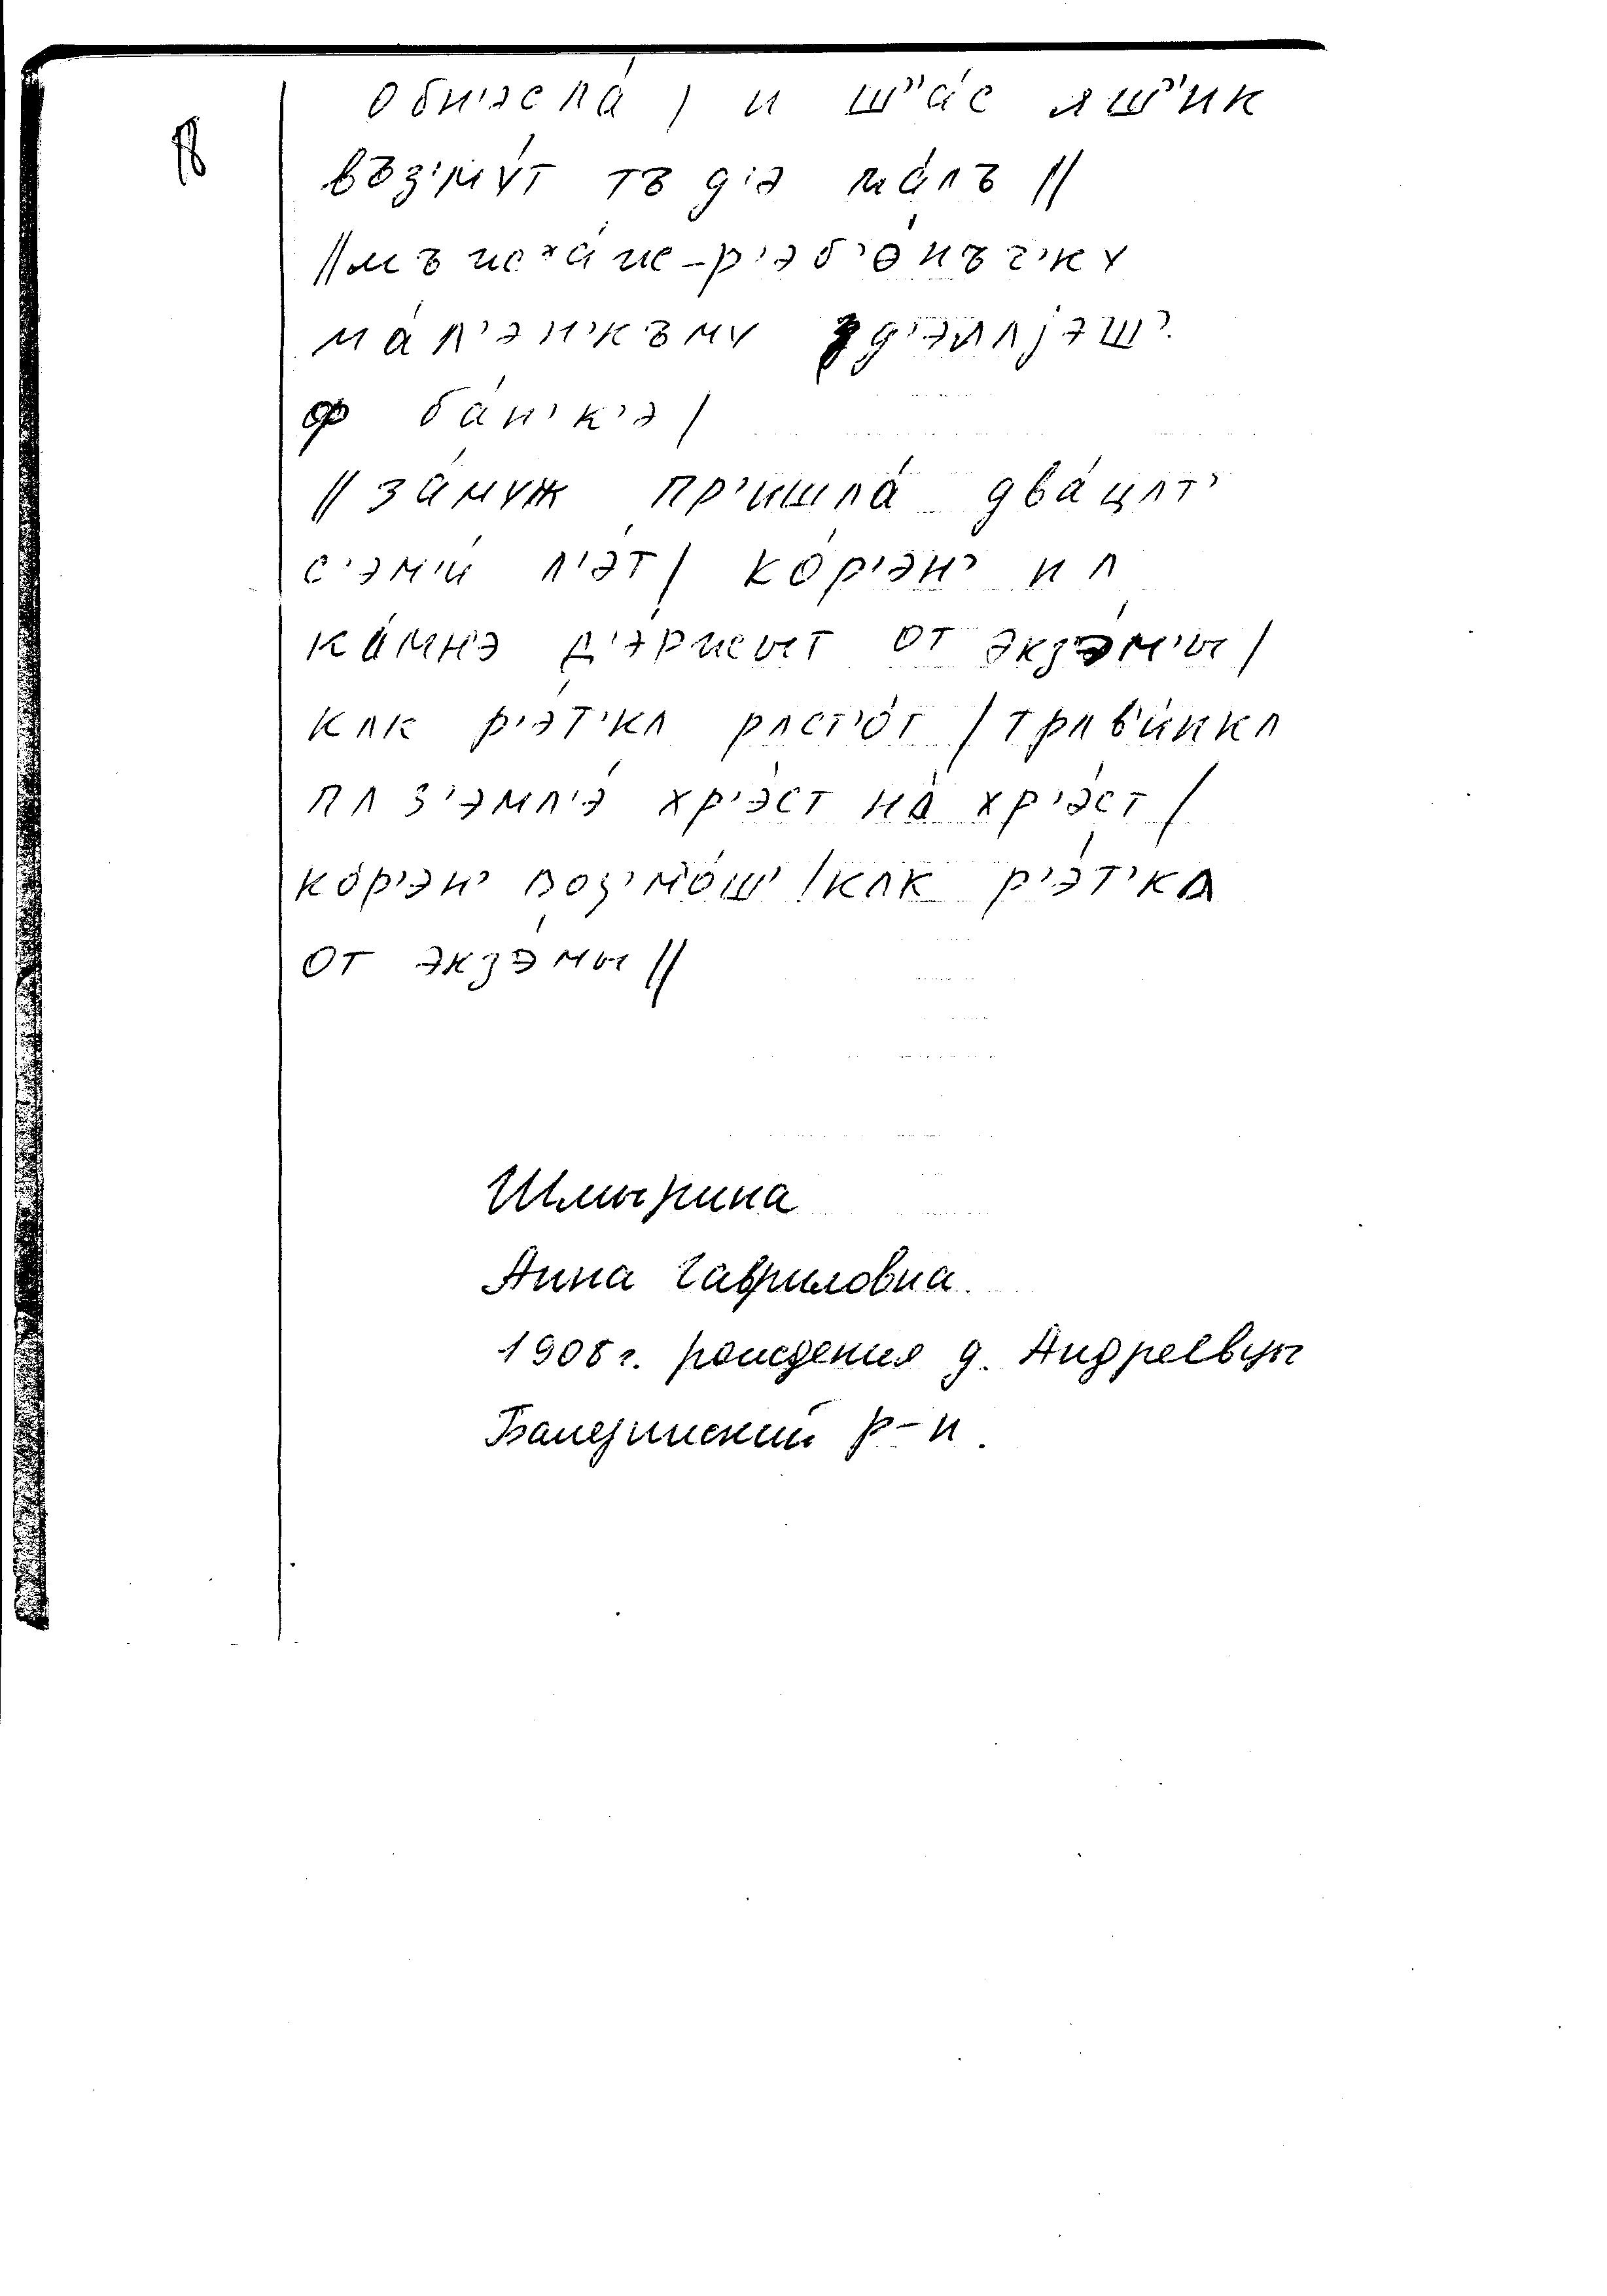 18
обн'эсла́ / и ш"а́с яш"ик
въз'му́т тъ д'э ма́лъ //
// мъжжа́ж-р'эб'о́нъч'ку
ма́л'эн'къму зд'э́лʌjэш'
ф ба́н'к'э /
// за́муж пр'ишла́ два́цʌт'
с'эм'и́ л'эт / ко́р'эн' и л
ка́мн'э д'э́ржыт от экзэ́м'ы /
кʌк р'э́т'кʌ рʌст'о́т / трʌв'и́нкʌ
пʌ з'эмл'э́ хр'э́ст на́ хр'э́ст /
ко́р'эн' воз'м'о́ш' / кʌк р'э́т'кʌ
от экзэ́мы //
Шмырина
Анна Гавриловна
1908 г. рождения д. Андреевцы
Балезинский р-н.